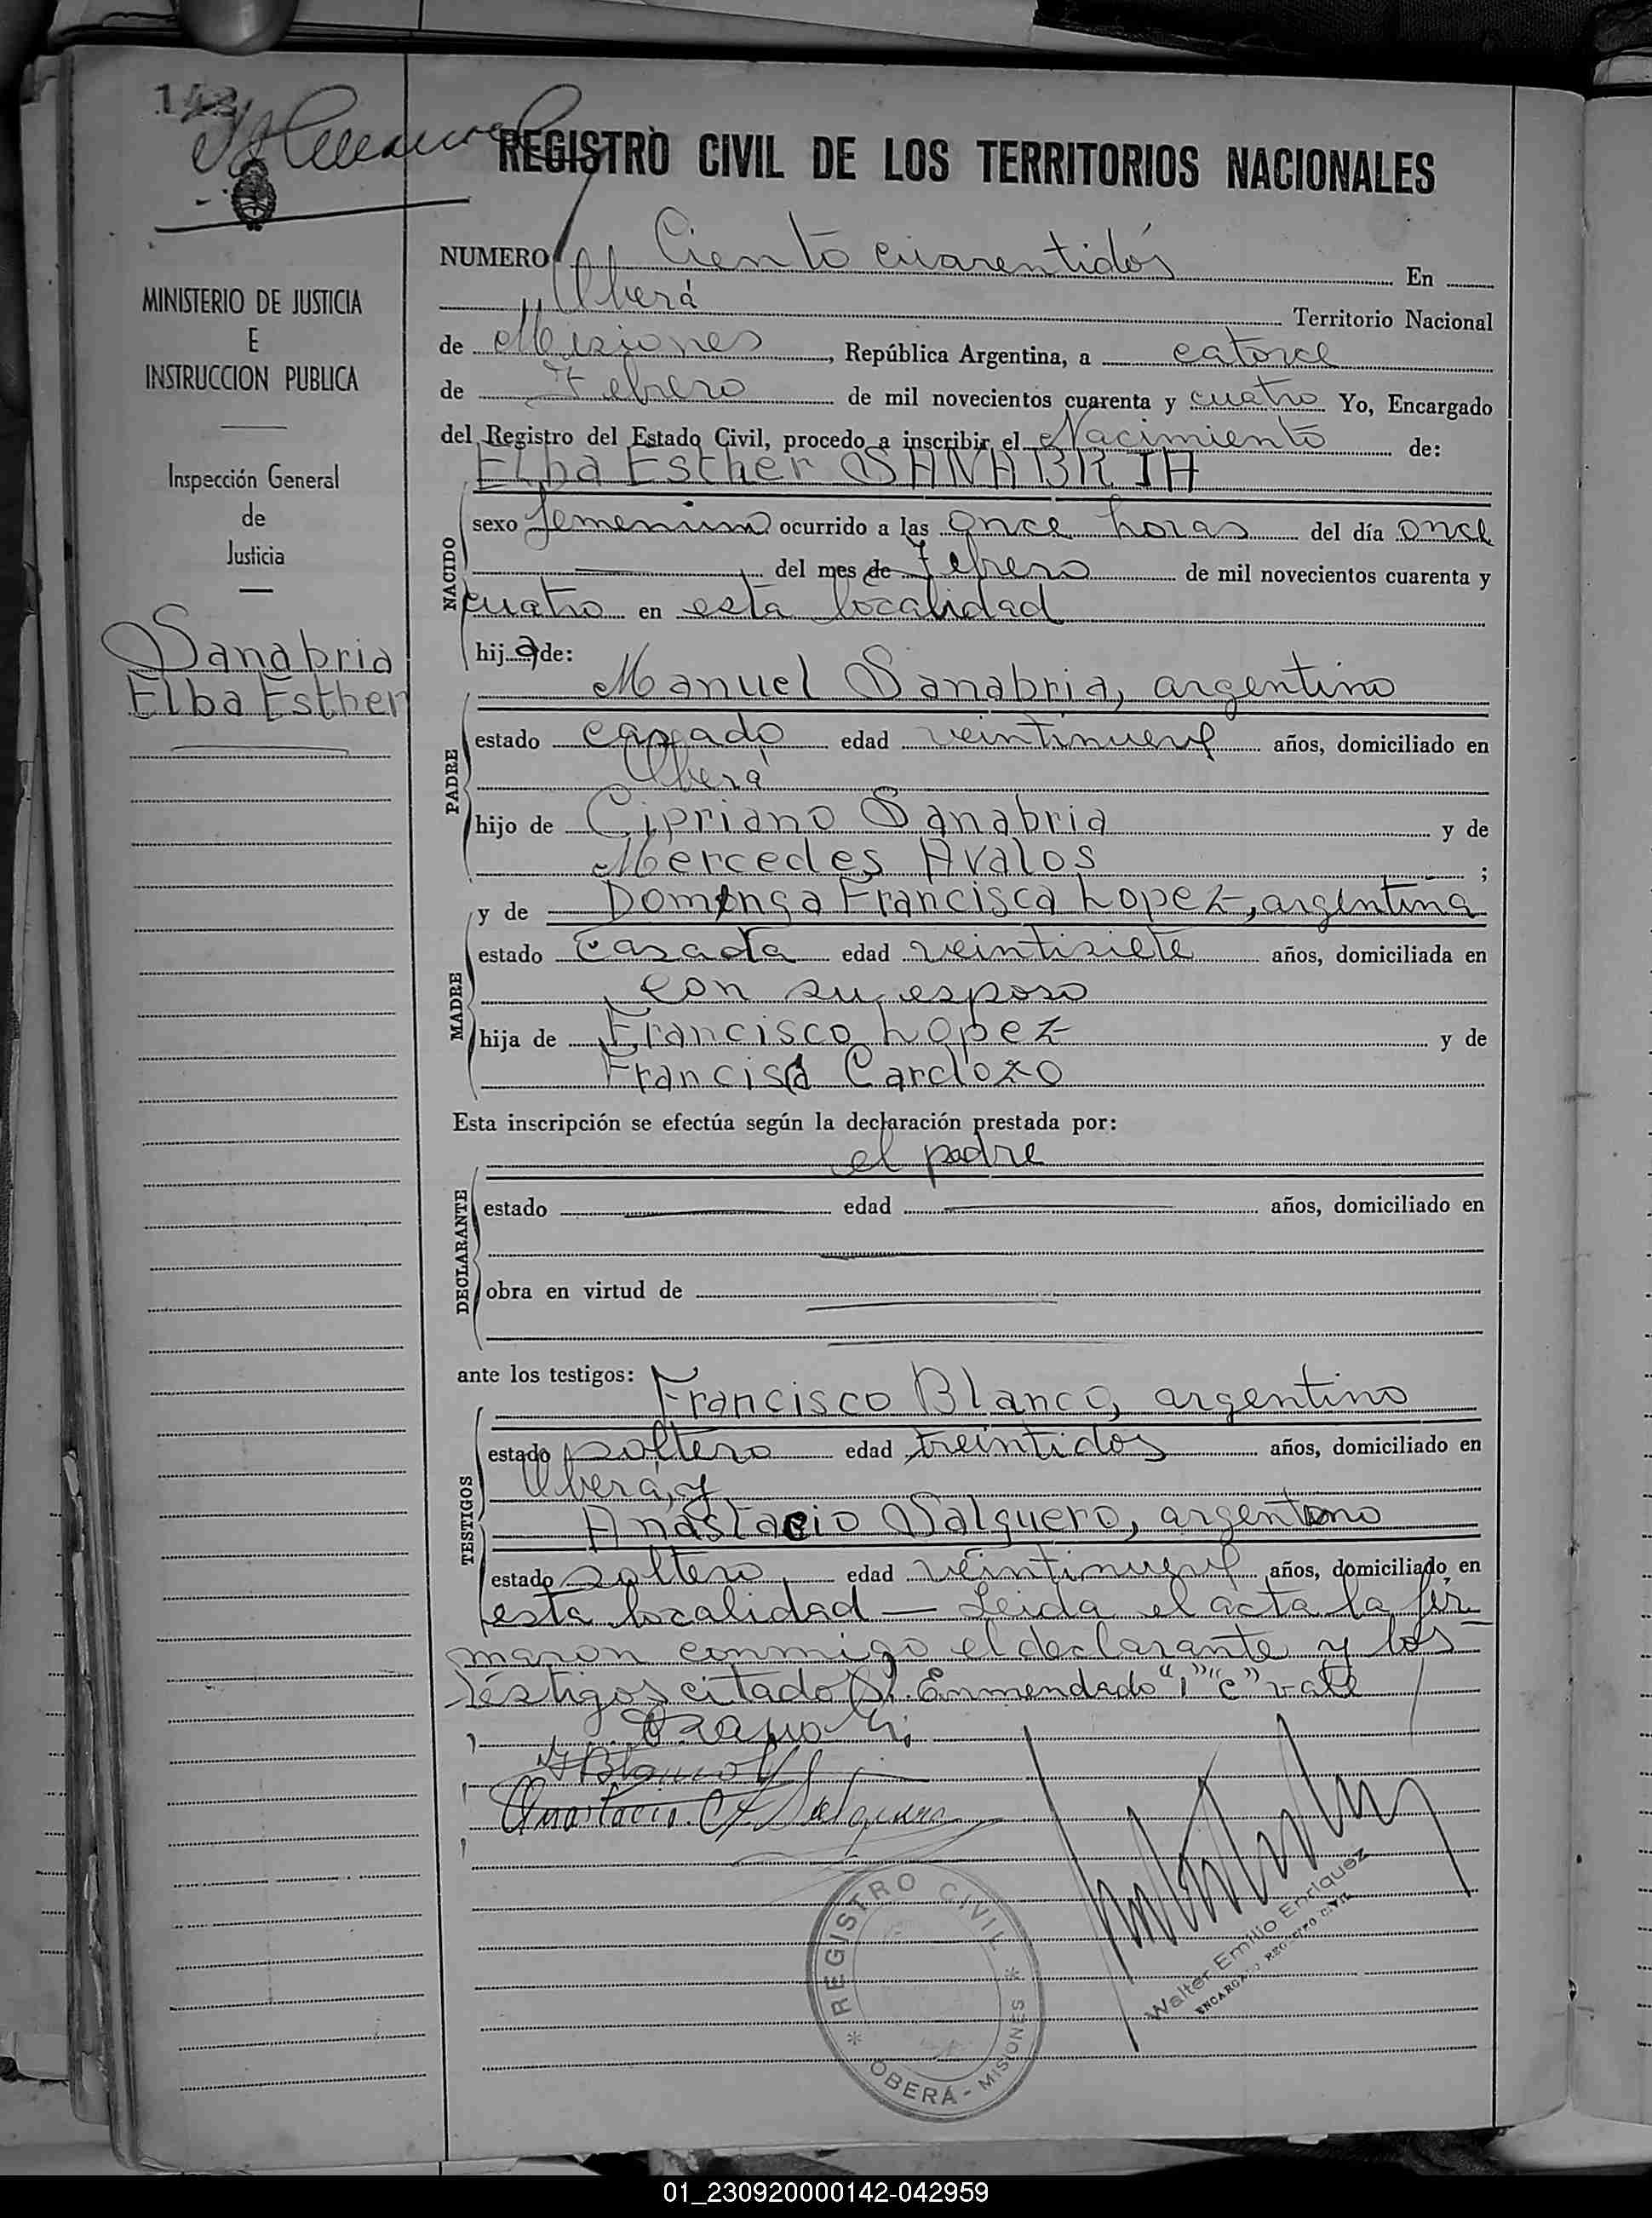 142
REGISTRO CIVIL DE LOS TERRITORIOS NACIONALES
NUMERO Ciento cuarentidós En
Oberá Territorio Nacional
de Misiones, República Argentina, a catorce
de Febrero de mil novecientos cuarenta y cuatro Yo, Encargado
del Registro del Estado Civil, procedo a inscribir el Nacimiento de:
Elba Esther SANABRIA
NACIDO
sexo femenino ocurrido a las once horas del día once
del mes de febrero de mil novecientos cuarenta y
cuatro en esta localidad
hija de:
PADRE
Manuel Sanabria, argentino
estado casado edad veintinueve años, domiciliado en
Oberá
hijo de Cipriano Sanabria y de
Mercedes Avalos ;
MADRE
y de Dominga Francisca Lopez, argentina
estado casada edad veintisiete años, domiciliada en
con su esposo
hija de Francisco Lopez y de
Francisca Cardozo
Esta inscripción se efectúa según la declaración prestada por:
DECLARANTE
el padre
estado edad años, domiciliado en
obra en virtud de
ante los testigos:
TESTIGOS
Francisco Blanco, argentino
estado soltero edad treintidos años, domiciliado en
Oberá, y
Anastacio Salguero, argentino
estado soltero edad veintinueve años, domiciliado en
esta localidad — Leida el acta la fir
maron conmigo el declarante y los
testigos citado(s). Enmendado "i" "c" vale
F Blanco
Anastacio Salguero
REGISTRO CIVIL
OBERÁ - MISIONES
Walter Emilio Enriquez
ENCARGADO REGISTRO CIVIL
MINISTERIO DE JUSTICIA
E
INSTRUCCION PUBLICA
Inspección General
de
Justicia
Sanabria
Elba Esther
01_230920000142-042959